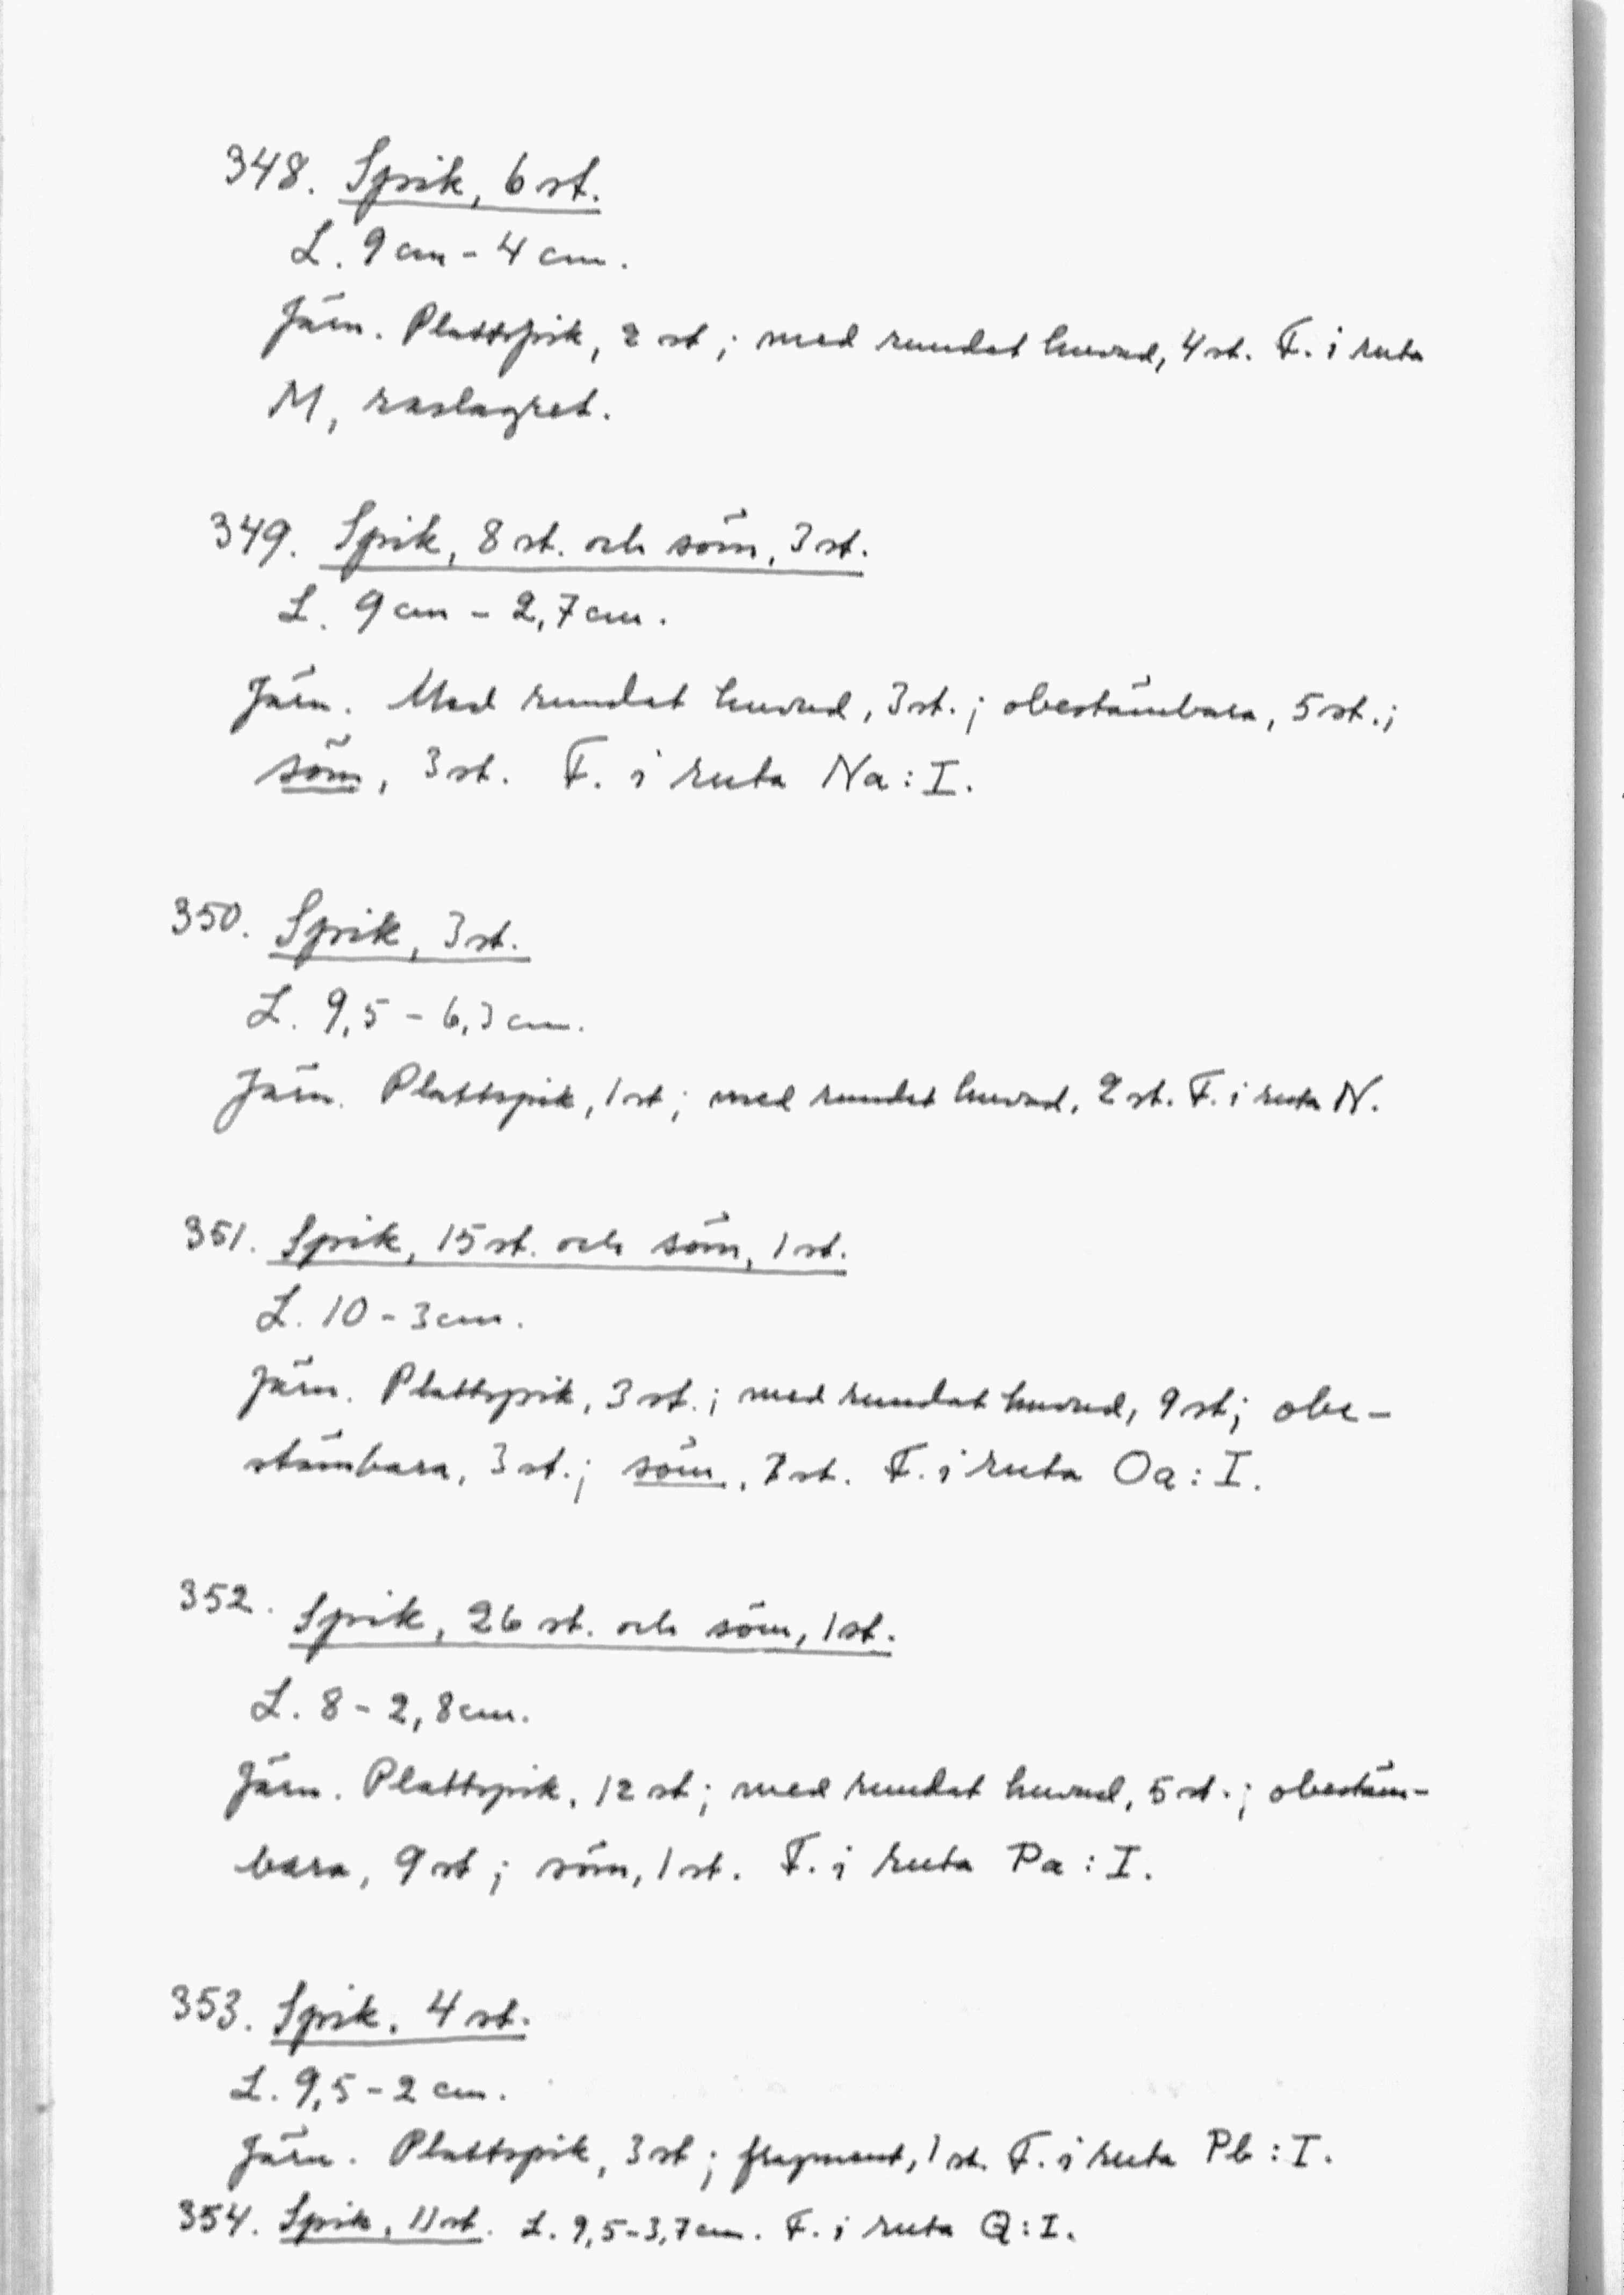 348. Spik, 6 st.
L. 9 cm - 4 cm.
Järn. Plattspik, 2 st; med rundat huvud, 4 st. F. i ruta
M, raslagret.
349. Spik, 8 st. och söm, 3 st.
L. 9 cm - 2,7 cm.
Järn. Med rundat huvud, 3 st.; obestämbara, 5 st.;
söm, 3 st. F. i ruta Na : I.
350. Spik, 3 st.
L. 9,5 - 6,3 cm.
Järn. Plattspik, 1 st; med rundat huvud, 2 st. F. i ruta N.
351. Spik, 15 st. och söm, 1 st.
L. 10 - 3 cm.
Järn. Plattspik, 3 st.; med rundat huvud, 9 st; obe-
stämbara, 3 st.; söm, st. F. i ruta Oa : I.
352. Spik, 26 st. och söm, 1 st.
L. 8 - 2,8 cm.
Järn. Plattspik, 12 st; med rundat huvud, 5 st.; obestäm-
bara, 9 st; söm, 1 st. F. i ruta Pa : I.
353. Spik, 4 st.
L. 9,5 - 2 cm.
Järn. Plattspik, 3 st; fragment, 1 st. F. i ruta Pb : I.
354. Spik, 11 st. L. 9,5 - 3,7 cm. F. i ruta Q : I.